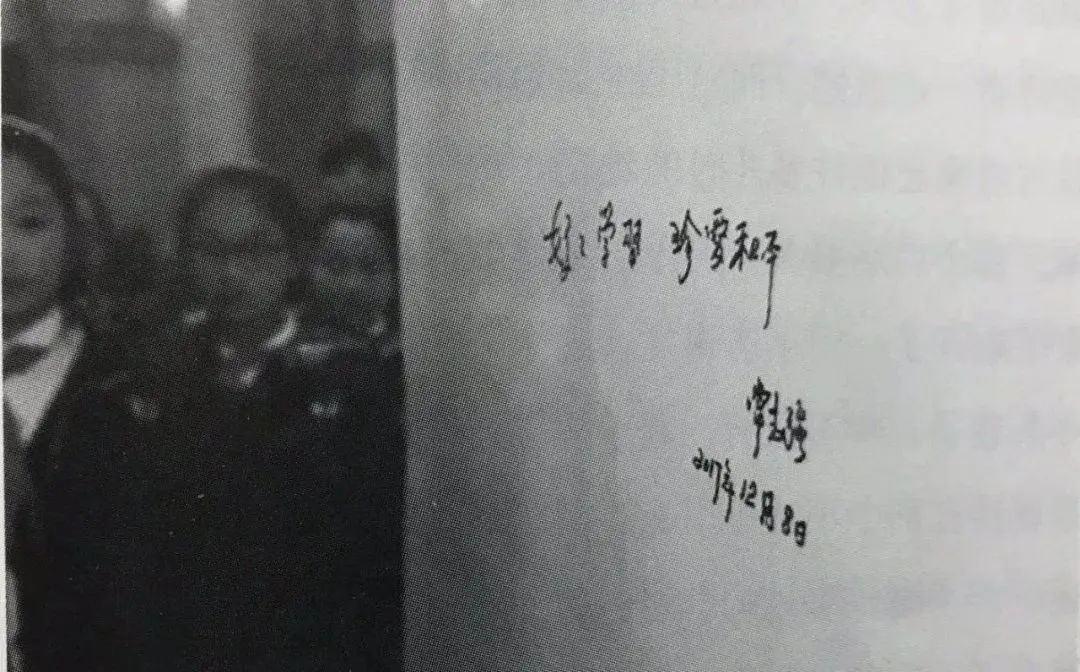 好々学习 珍爱和平
常志强
2017年12月8日